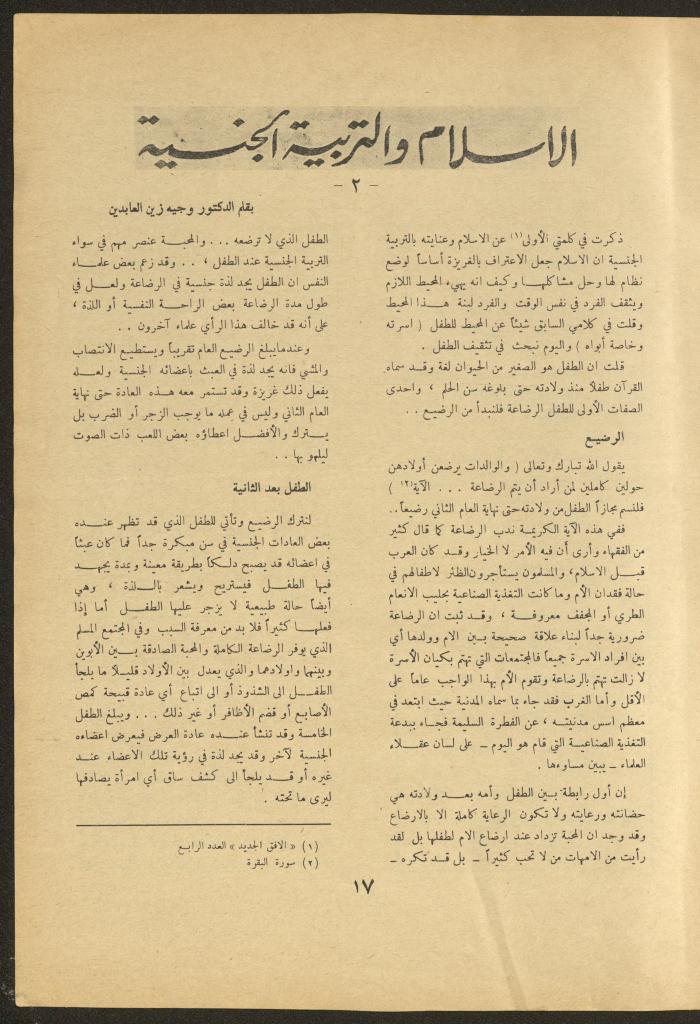 الاسلام والتربية الجنسية
- ٢ -
بقلم الدكتور وجيه زين العابدين
ذكرت في كلمتي الأولى(١) عن الاسلام وعنايته بالتربية
الجنسية ان الاسلام جعل الاعتراف بالغريزة أساساً لوضع
نظام لها وحل مشاكلها وكيف انه يهيء المحيط اللازم
ويثقف الفرد في نفس الوقت والفرد لبنة هذا المحيط
وقلت في كلامي السابق شيئاً عن المحيط للطفل ( اسرته
وخاصة أبواه ) واليوم نبحث في تثقيف الطفل .
قلت ان الطفل هو الصغير من الحيوان لغة وقد سماه
القرآن طفلاً منذ ولادته حتى بلوغه سن الحلم ، واحدى
الصفات الأولى للطفل الرضاعة فلنبدأ من الرضيع . .
الرضيع
يقول الله تبارك وتعالى ( والوالدات يرضعن أولادهن
حولين كاملين لمن أراد أن يتم الرضاعة . . . الآية(٢) )
فلنسم مجازاً الطفل من ولادته حتى نهاية العام الثاني رضيعاً . .
ففي هذه الآية الكريمة ندب الرضاعة كما قال كثير
من الفقهاء وأرى أن فيه الأمر لا الخيار وقد كان العرب
قبل الاسلام، والمسلمون يستأجرون الظئر لاطفالهم في
حالة فقدان الأم وما كانت التغذية الصناعية بحليب الانعام
الطري أو المجفف معروفة ، وقد ثبت ان الرضاعة
ضرورية جداً لبناء علاقة صحيحة بين الام وولدها أي
بين افراد الاسرة جميعاً فالمجتمعات التي تهتم بكيان الأسرة
لا زالت تهتم بالرضاعة وتقوم الأم بهذا الواجب عاماً على
الأقل وأما الغرب فقد جاء بما سماه المدنية حيث ابتعد في
معظم اسس مدنيته ، عن الفطرة السليمة فجاء ببدعة
التغذية الصناعية التي قام هو اليوم ــ على لسان عقلاء
العلماء ــ يبين مساوءها .
إن أول رابطة بين الطفل وأمه بعد ولادته هي
حضانته ورعايته ولا تكون الرعاية كاملة الا بالارضاع
وقد وجد ان المحبة تزداد عند ارضاع الام لطفلها بل لقد
رأيت من الامهات من لا تحب كثيراً ــ بل قد تكره ــ
الطفل الذي لا ترضعه . . . والمحبة عنصر مهم في سواء
التربية الجنسية عند الطفل ، . . وقد زعم بعض علماء
النفس ان الطفل يجد لذة جنسية في الرضاعة ولعل في
طول مدة الرضاعة بعض الراحة النفسية أو اللذة ،
على أنه قد خالف هذا الرأي علماء آخرون . .
وعندما يبلغ الرضيع العام تقريباً ويستطيع الانتصاب
والمشي فانه يجد لذة في العبث باعضائه الجنسية ولعله
يفعل ذلك غريزة وقد تستمر معه هذه العادة حتى نهاية
العام الثاني وليس في عمله ما يوجب الزجر أو الضرب بل
يترك والأفضل اعطاؤه بعض اللعب ذات الصوت
ليلهو بها . .
الطفل بعد الثانية
لنترك الرضيع وتأتي للطفل الذي قد تظهر عنده
بعض العادات الجنسية في سن مبكرة جداً فما كان عبثاً
في اعضائه قد يصبح دلكاً بطريقة معينة وبمدة يجهد
فيها الطفل فيستريح ويشعر باللذة ، وهي
أيضاً حالة طبيعية لا يزجر عليها الطفل أما إذا
فعلها كثيراً فلا بد من معرفة السبب وفي المجتمع المسلم
الذي يوفر الرضاعة الكاملة والمحبة الصادقة بين الأبوين
وبينهما واولادهما والذي يعدل بين الأولاد قليلا ما يلجأ
الطفل الى الشذوذ أو الى اتباع أي عادة قبيحة كمص
الأصابع أو قضم الأظافر أو غير ذلك . . . ويبلغ الطفل
الخامسة وقد تنشأ عنده عادة العرض فيعرض اعضاءه
الجنسية لآخر وقد يجد لذة في رؤية تلك الاعضاء عند
غيره أو قد يلجأ الى كشف ساق أي امرأة يصادفها
ليرى ما تحته .
(١) « الافق الجديد » العدد الرابع
(٢) سورة البقرة
١٧